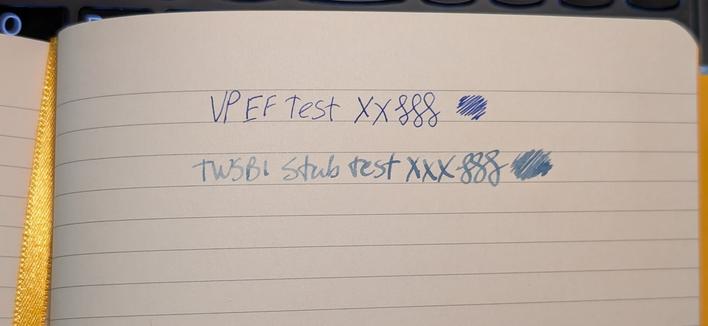 VP EF Test XX888
TWSBI Stub test XXX888